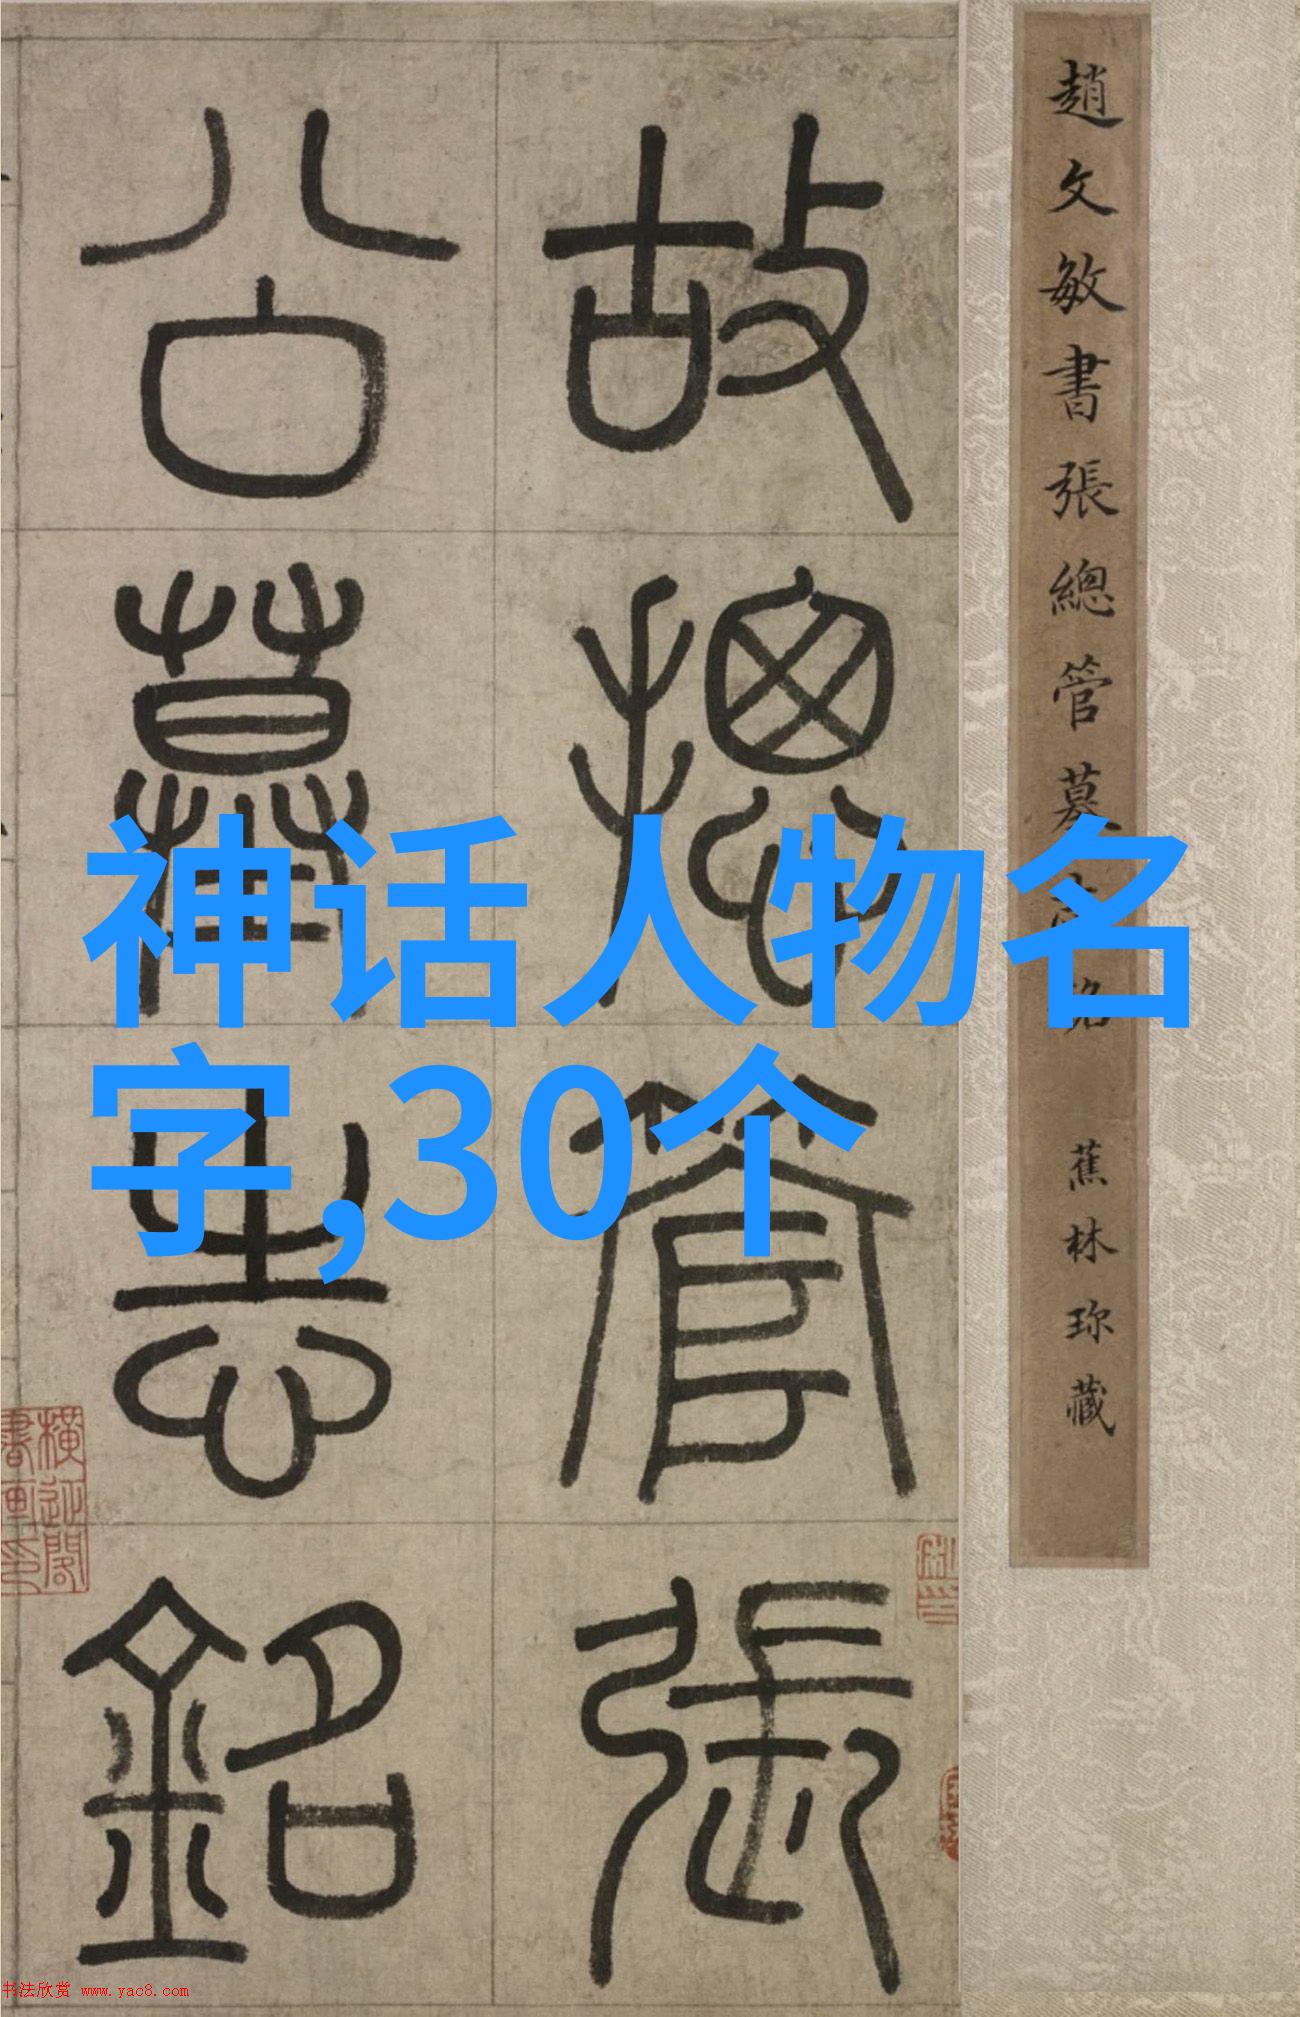 趙文敏書張總管墓銘 蕉林珍藏
故揔管張
公墓志銘
神话人物名
字,30个
书法欣赏 www.yac8.com